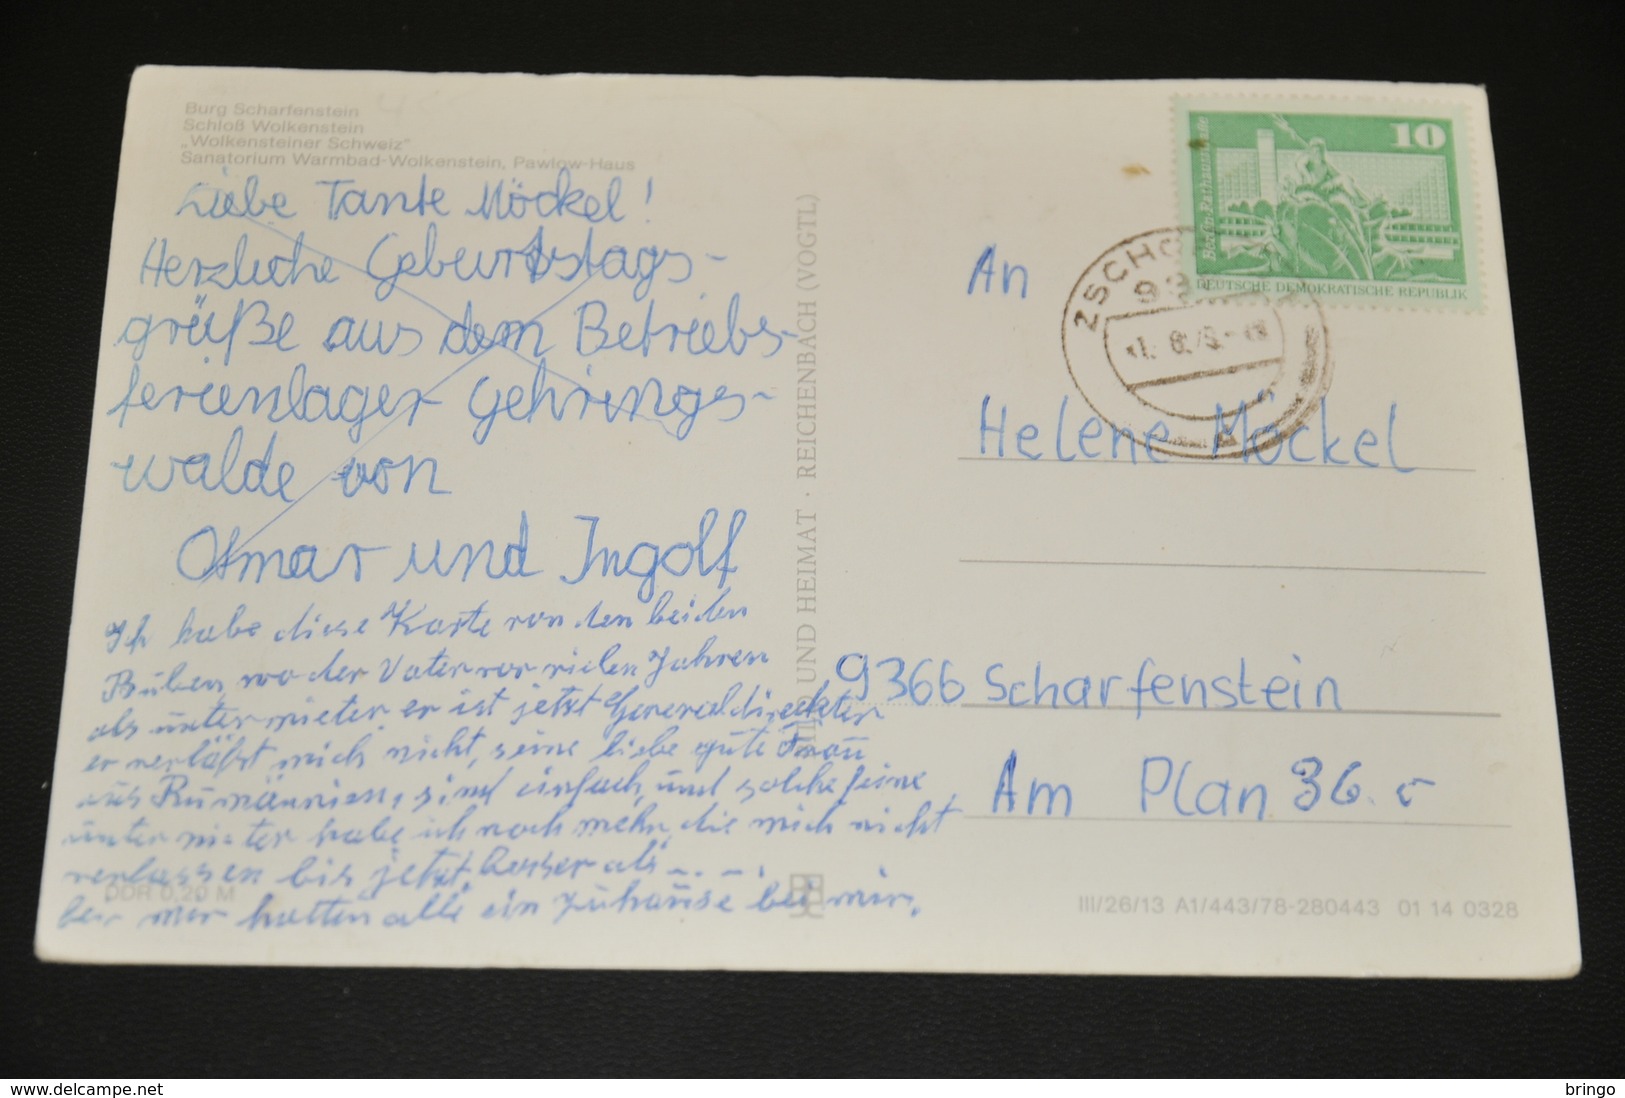 Burg Scharfenstein
Schloß Wolkenstein
„Wolkensteiner Schweiz"
Sanatorium Warmbad-Wolkenstein, Pawlow-Haus
Liebe Tante Möckel!
Herzliche Geburtstags-
grüße aus dem Betriebs-
ferienlager Gehrings-
walde von
Otmar und Ingolf
Ich habe diese Karte von den beiden
Buben, wo der Vater vor vielen Jahren
als untermieter, er ist jetzt Generaldirekter
er verläßt mich nicht, seine liebe gute Frau
aus Rumännien, sind einfach, und solche feine
untermieter habe ich noch mehr, die mich nicht
verlassen bis jetzt besser als - - - .
bei mir hatten alle ein Zuhause bei mir.
DDR 0,20 M
BILD UND HEIMAT · REICHENBACH (VOGTL)
10
Berlin-Rathausstraße
DEUTSCHE DEMOKRATISCHE REPUBLIK
ZSCHO
An
Helene Möckel
9366 Scharfenstein
Am Plan 36. c
III/26/13 A1/443/78-280443 01 14 0328
www.delcampe.net
bringo